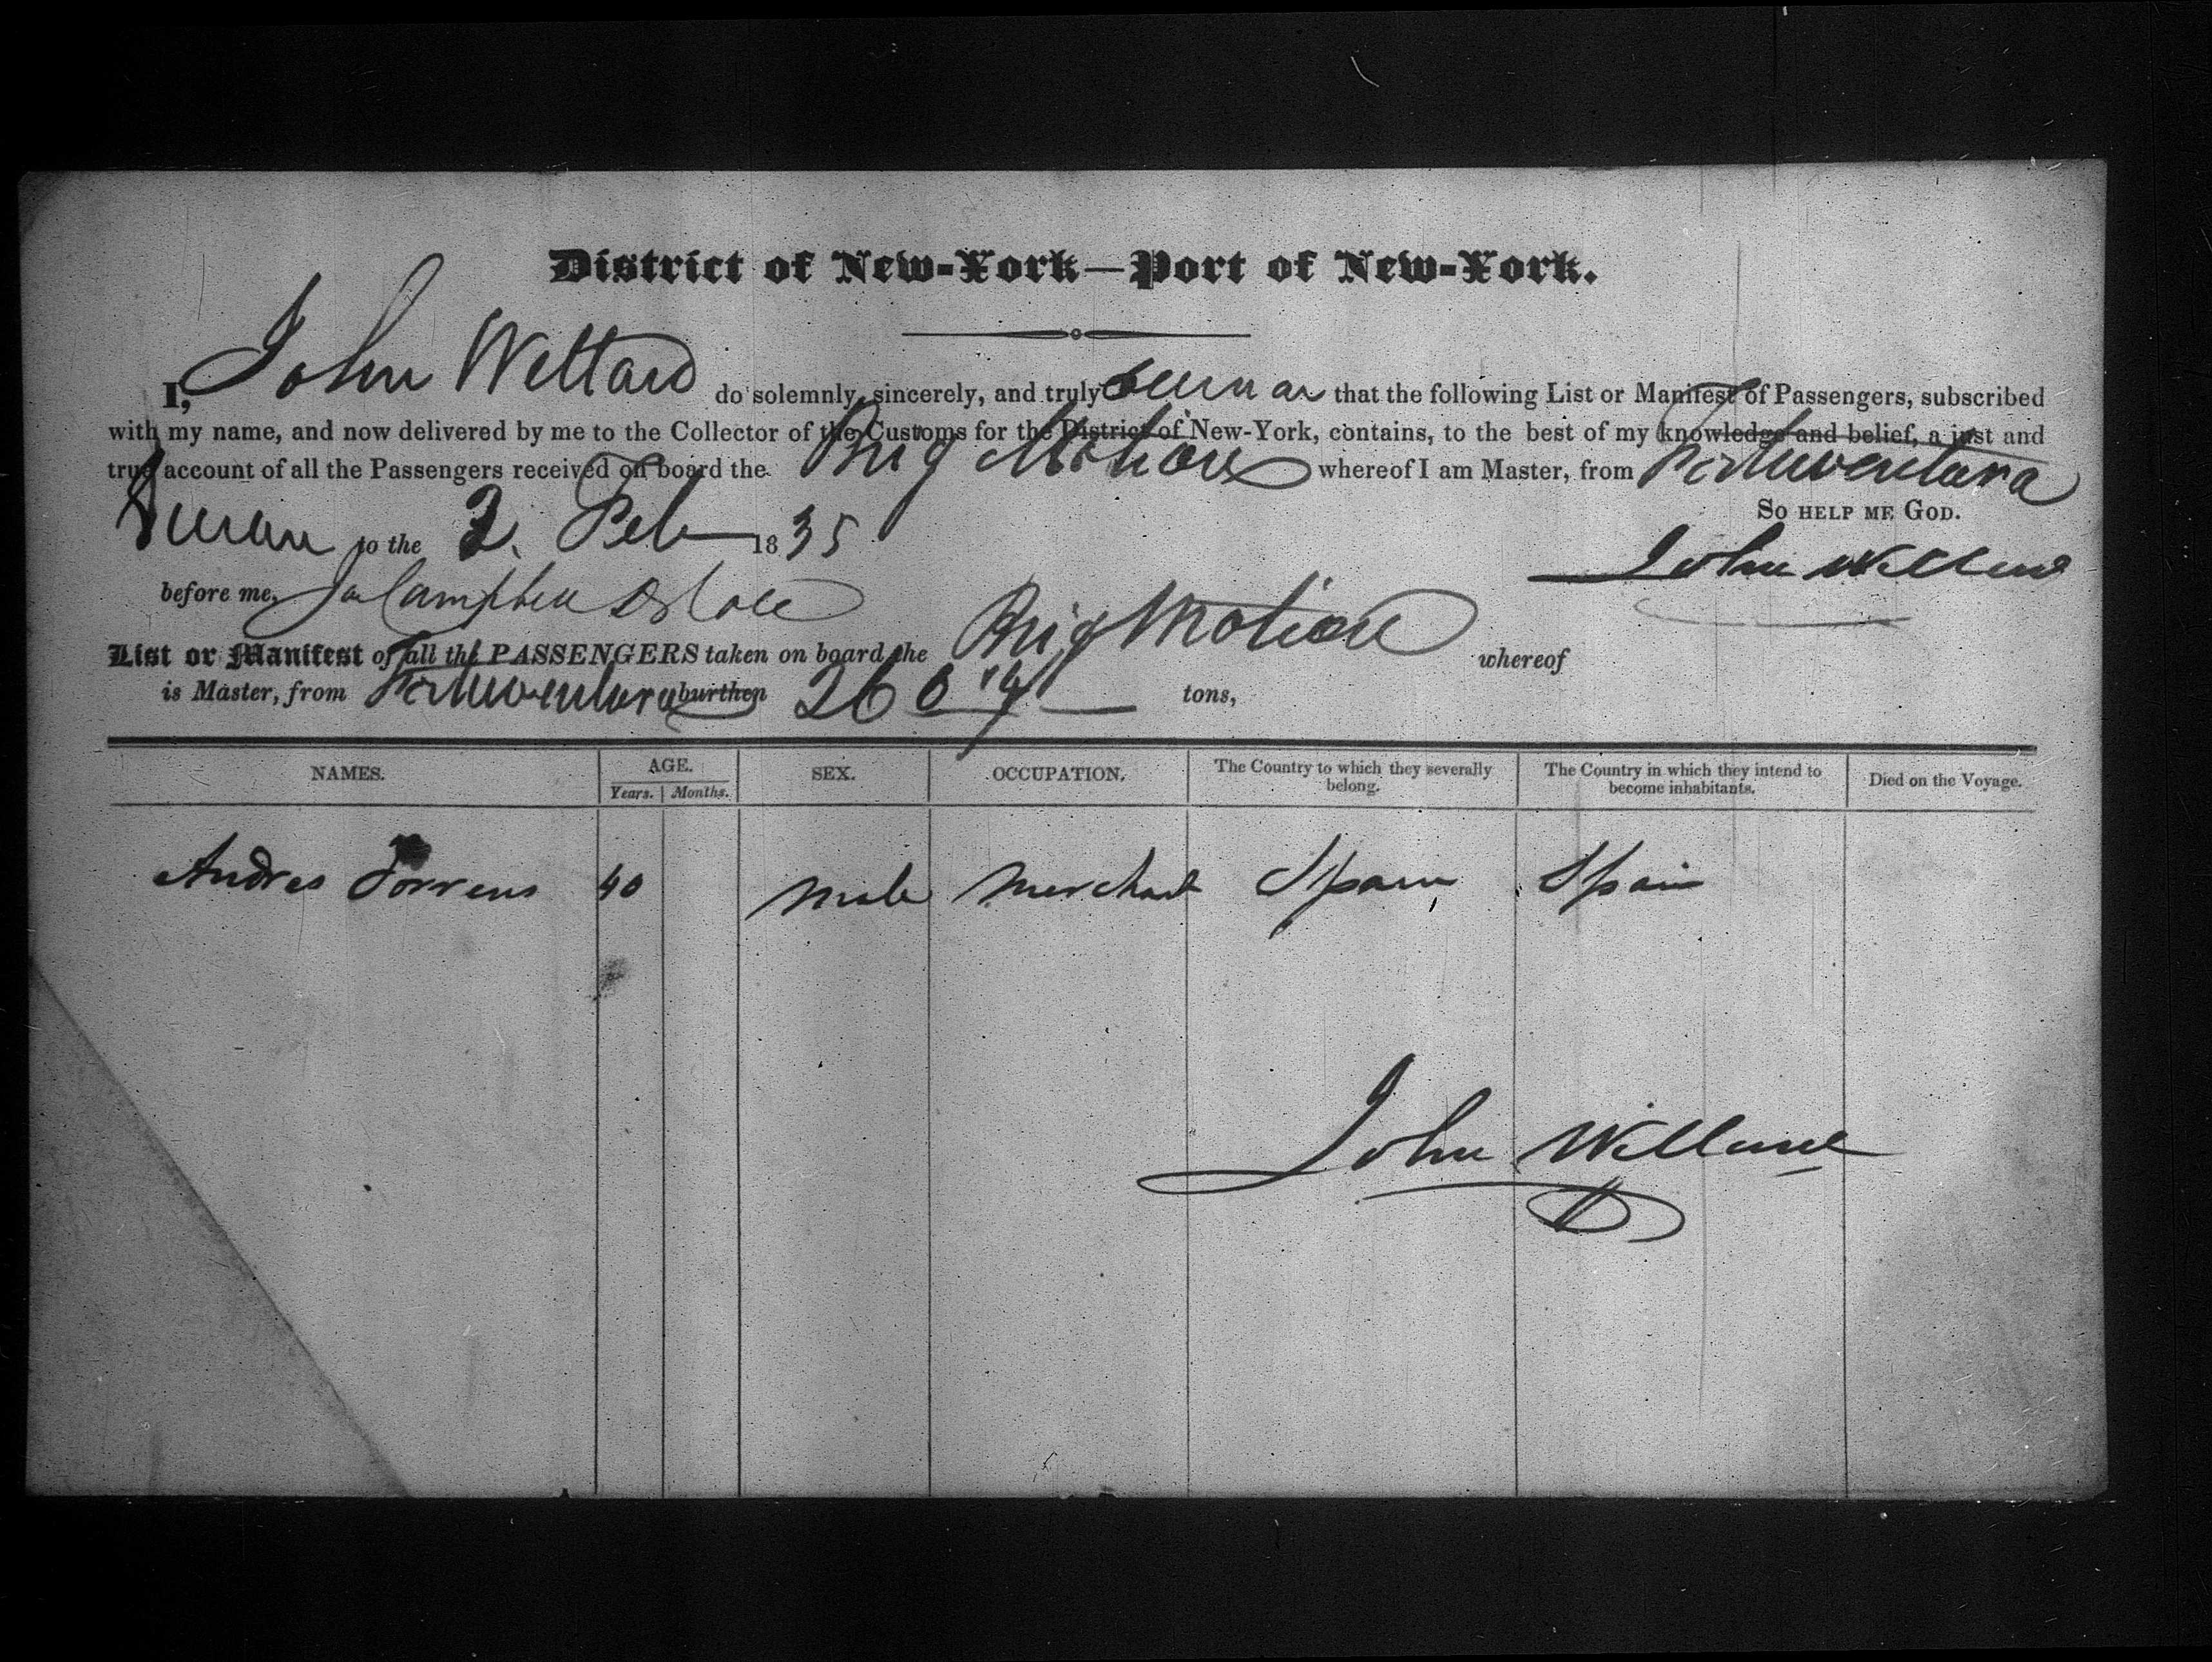 District of New-York—Port of New-York.
I, John Willard do solemnly, sincerely, and truly swear that the following List or Manifest of Passengers, subscribed
with my name, and now delivered by me to the Collector of the Customs for the District of New-York, contains, to the best of my knowledge and belief, a just and
true account of all the Passengers received on board the Brig Motion whereof I am Master, from Fortuventura
So HELP ME GOD.
Sworn to the 2. Feb 1835
John Willard
before me,
List or Manifest of all the PASSENGERS taken on board the Brig Motion whereof
is Master, from Fortuventura burthen 260 tons,
NAMES. AGE. SEX. OCCUPATION. The Country to which they severally belong. The Country in which they intend to become inhabitants. Died on the Voyage.
Years. Months.
Andres Torrens 40 male Merchant Spain Spain
John Willard